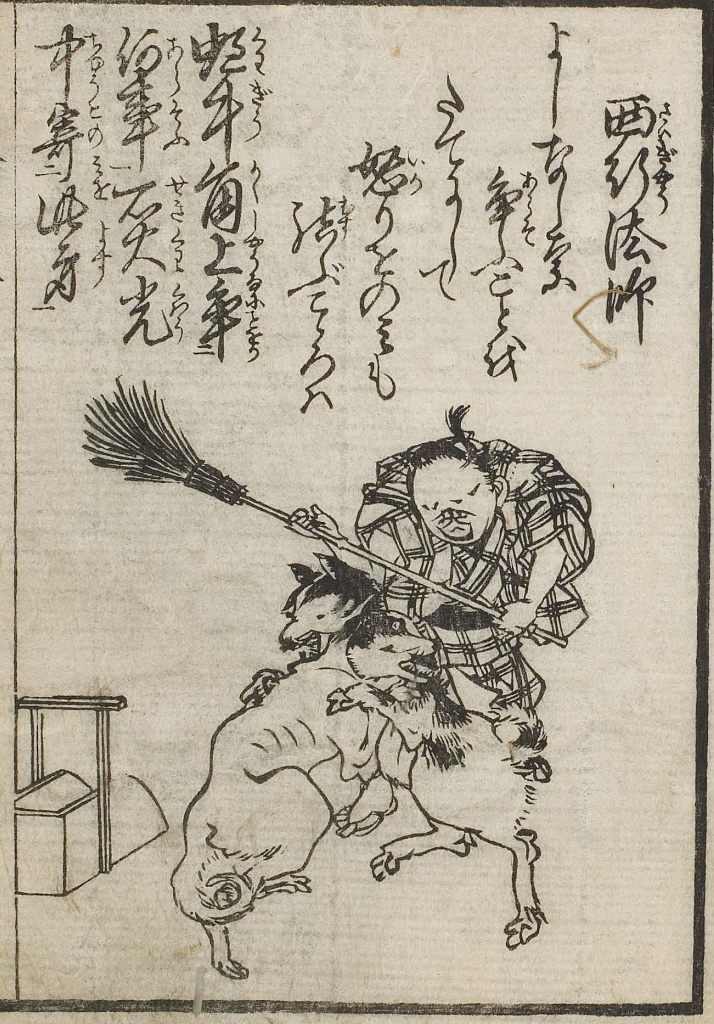 西行法師
よしなしな
争ふことを
たてにして
怒りをのみも
結ぶこゝろハ
蝸牛角上争
何事石火光
中寄此身